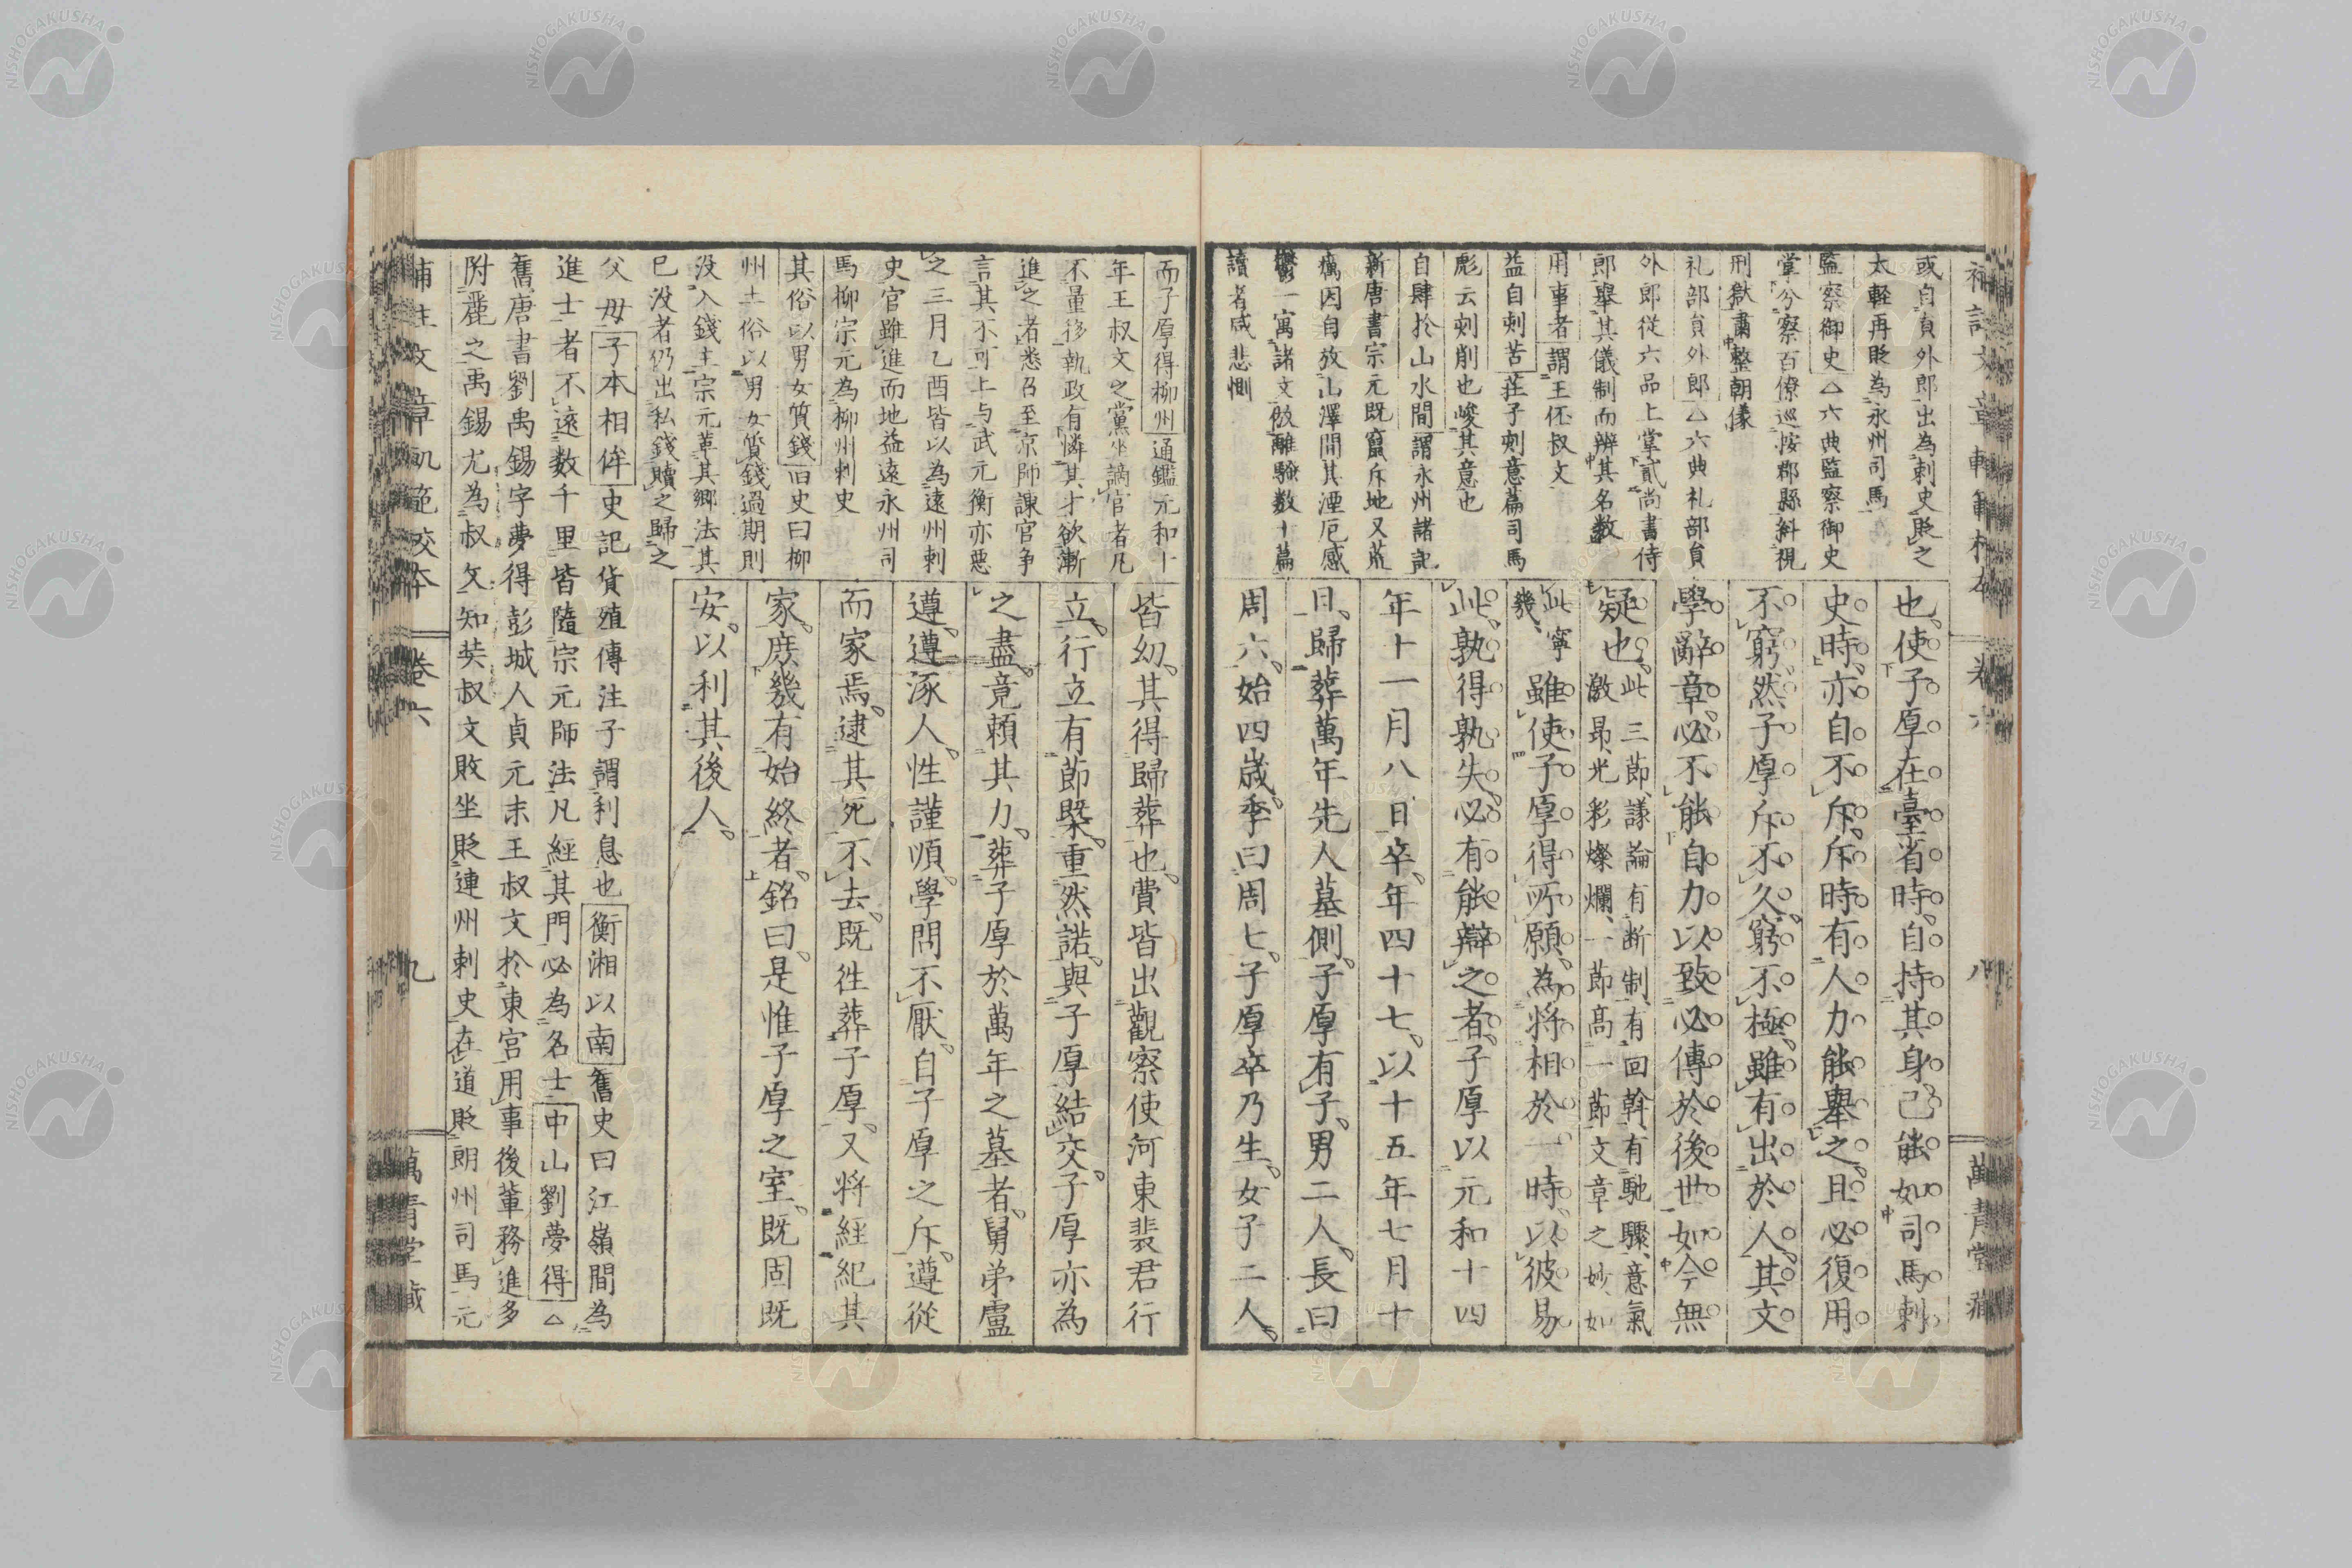 或自負外郎出為刺史貶之
太輕再貶為永州司馬
監察御史△六典監察御史
掌分察百僚巡按郡縣糾視
刑獄肅整朝儀
礼部負外郎△六典礼部負
外郎従六品上掌貳尚書侍
郎舉其儀制而辨其名数
用事者謂王伾叔文
益自刻苦荘子刻意篇司馬
彪云刻削也峻其意也
自肆於山水間謂永州諸記
新唐書宗元既竄斥地又荒
癘因自放山澤間其湮厄感
欝一寓諸文倣離騒数十篇
讀者咸悲惻
也使子厚在臺省時自持其身已能如司馬刺
史時亦自不斥斥時有人力能舉之且必復用
不窮然子厚斥不久窮不極雖有出於人其文
學辭章必不能自力以致必傳於後世如今無
疑也此三節議論有断制有回斡有馳驟意氣
激昂光彩燦爛一節高一節文章之妙如
此寧
幾雖使子厚得所願為將相於一時以彼易
此孰得孰失必有能辯之者子厚以元和十四
年十一月八日卒年四十七以十五年七月十
日歸葬萬年先人墓側子厚有子男二人長曰
周六始四歳季曰周七子厚卒乃生女子二人
卷六
八
萬青堂蔵
而子厚得柳州通鑑元和十
年王叔文之黨坐謫官者凡
不量移執政有憐其才欲漸
進之者悉召至京師諫官争
言其不可上与武元衡亦惡
之三月乙酉皆以為遠州刺
史官雖進而地益遠永州司
馬柳宗元為柳州刺史
其俗以男女質錢旧史曰柳
州土俗以男女質錢過期則
没入錢主宗元革其郷法其
已没者仍出私錢贖之歸之
皆幼其得歸葬也費皆出觀察使河東裴君行
立行立有節槩重然諾與子厚結交子厚亦為
之盡竟頼其力葬子厚於萬年之墓者舅弟盧
遵遵涿人性謹順學問不厭自子厚之斥遵從
而家焉逮其死不去既徃葬子厚又將經紀其
家庻幾有始終者銘曰是惟子厚之室既固既
安以利其後人
父母子本相侔史記貨殖傳注子謂利息也衡湘以南舊史曰江嶺間為
進士者不遠数千里皆隨宗元師法凡經其門必為名士中山劉夢得△
舊唐書劉禹錫字夢得彭城人貞元末王叔文於東宮用事後輩務進多
附麗之禹錫尤為叔文知奘叔文敗坐貶連州刺史在道貶朗州司馬元
補註文章軌範校本
卷六
九
萬青堂蔵